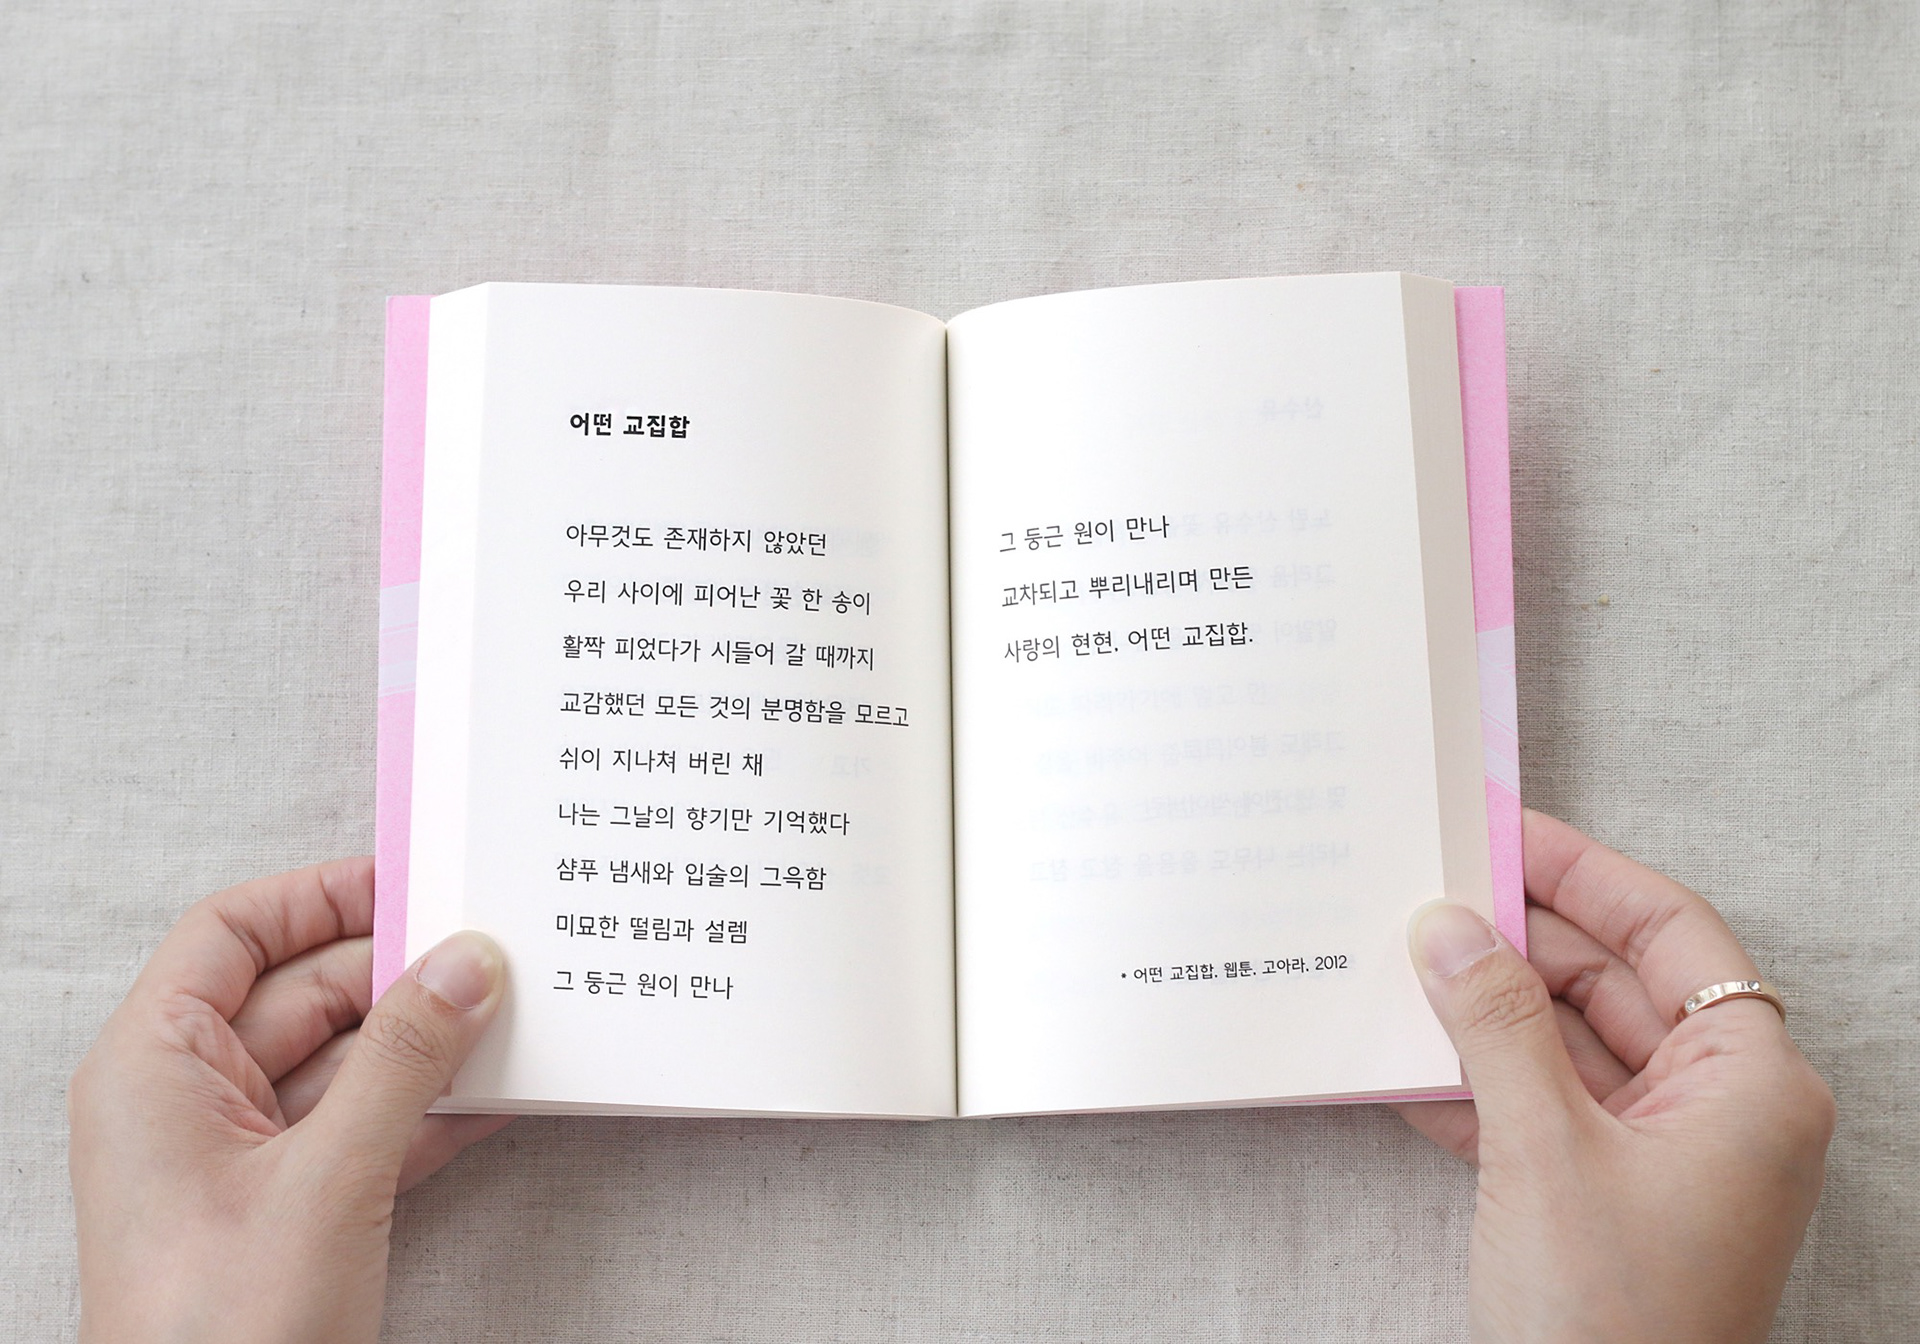 어떤 교집합
아무것도 존재하지 않았던
우리 사이에 피어난 꽃 한 송이
활짝 피었다가 시들어 갈 때까지
교감했던 모든 것의 분명함을 모르고
쉬이 지나쳐 버린 채
나는 그날의 향기만 기억했다
샴푸 냄새와 입술의 그윽함
미묘한 떨림과 설렘
그 둥근 원이 만나
그 둥근 원이 만나
교차되고 뿌리내리며 만든
사랑의 현현, 어떤 교집합.
* 어떤 교집합, 웹툰, 고아라, 2012